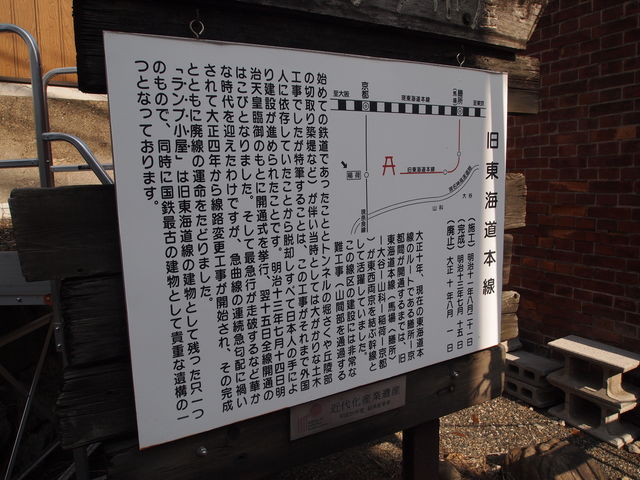 旧東海道本線
(施工) 明治十一年八月二十一日
(完成) 明治十三年七月十五日
(廃止) 大正十年八月一日
大正十年、現在の東海道本
線のルートである膳所ー京
都間が開通するまでは、旧
東海道本線(馬場(膳所)
ー大谷ー山科ー稲荷ー京都
)が東西両京を結ぶ幹線と
して活躍していました。
この線区の建設には非常な
難工事(山間部を通過する
始めての鉄道であったこととトンネルの堀さくや丘陵部
の切取り築堤など)が伴い当時としては大がかりな土木
工事でしたが特筆することは、この工事がそれまで外国
人に依存していたことから脱却しすべて日本人の手によ
り建設が進められたことです。明治十三年七月十四日明
治天皇臨御のもとに開通式を挙行、翌十五日全線開通の
はこびとなりました。そして最急行が走破するなど華か
な時代を迎えたわけですが、急曲線の連続急勾配に禍い
されて大正四年から線路変更工事が開始され、その完成
とともに廃線の運命をたどりました。
「ランプ小屋」は旧東海道線の建物として残った只一つ
のもので、同時に国鉄最古の建物として貴重な遺構の一
つとなっております。
至大阪
京都
現東海道本線
膳所
(馬場)
至東京
稲荷
旧東海道本線
大谷
山科
現奈良線
現名神高速道路
近代化産業遺産